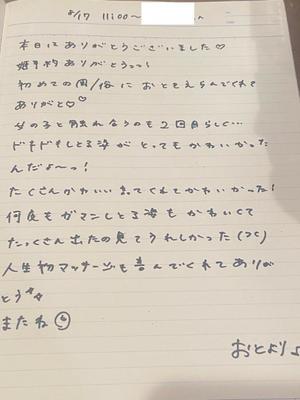 8/17 11:00〜
本日はありがとうございました♡
婚予約ありがとうっっ!
初めての風/俗におとをえらんでくれて
ありがと♡♡
女の子と触れ合うのも2回目らしく…
ドキドキしとる姿がとってもかわいかった
んだよ〜っ!
たくさんかわいい言ってくれてかわいかった!
何度もガマンしとる姿もかわいくて
たっくさん出たの見てうれしかった
人生初マッサージも喜んでくれてありが
とう☆☆
またね
おとより♪